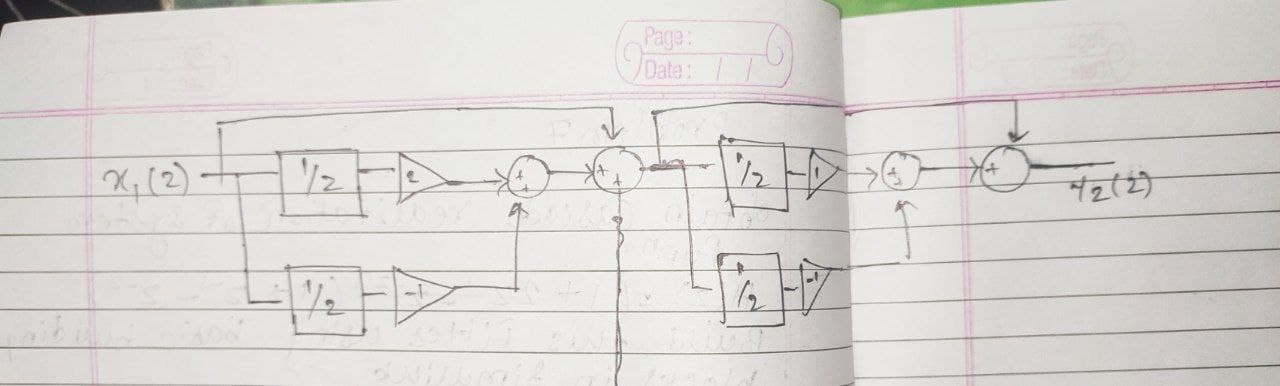 Page:
Date: / /
x₁(2) 1/2 2 + + + + 1/2 1 + + + y₂(2)
1/2 -1 1/2 -1